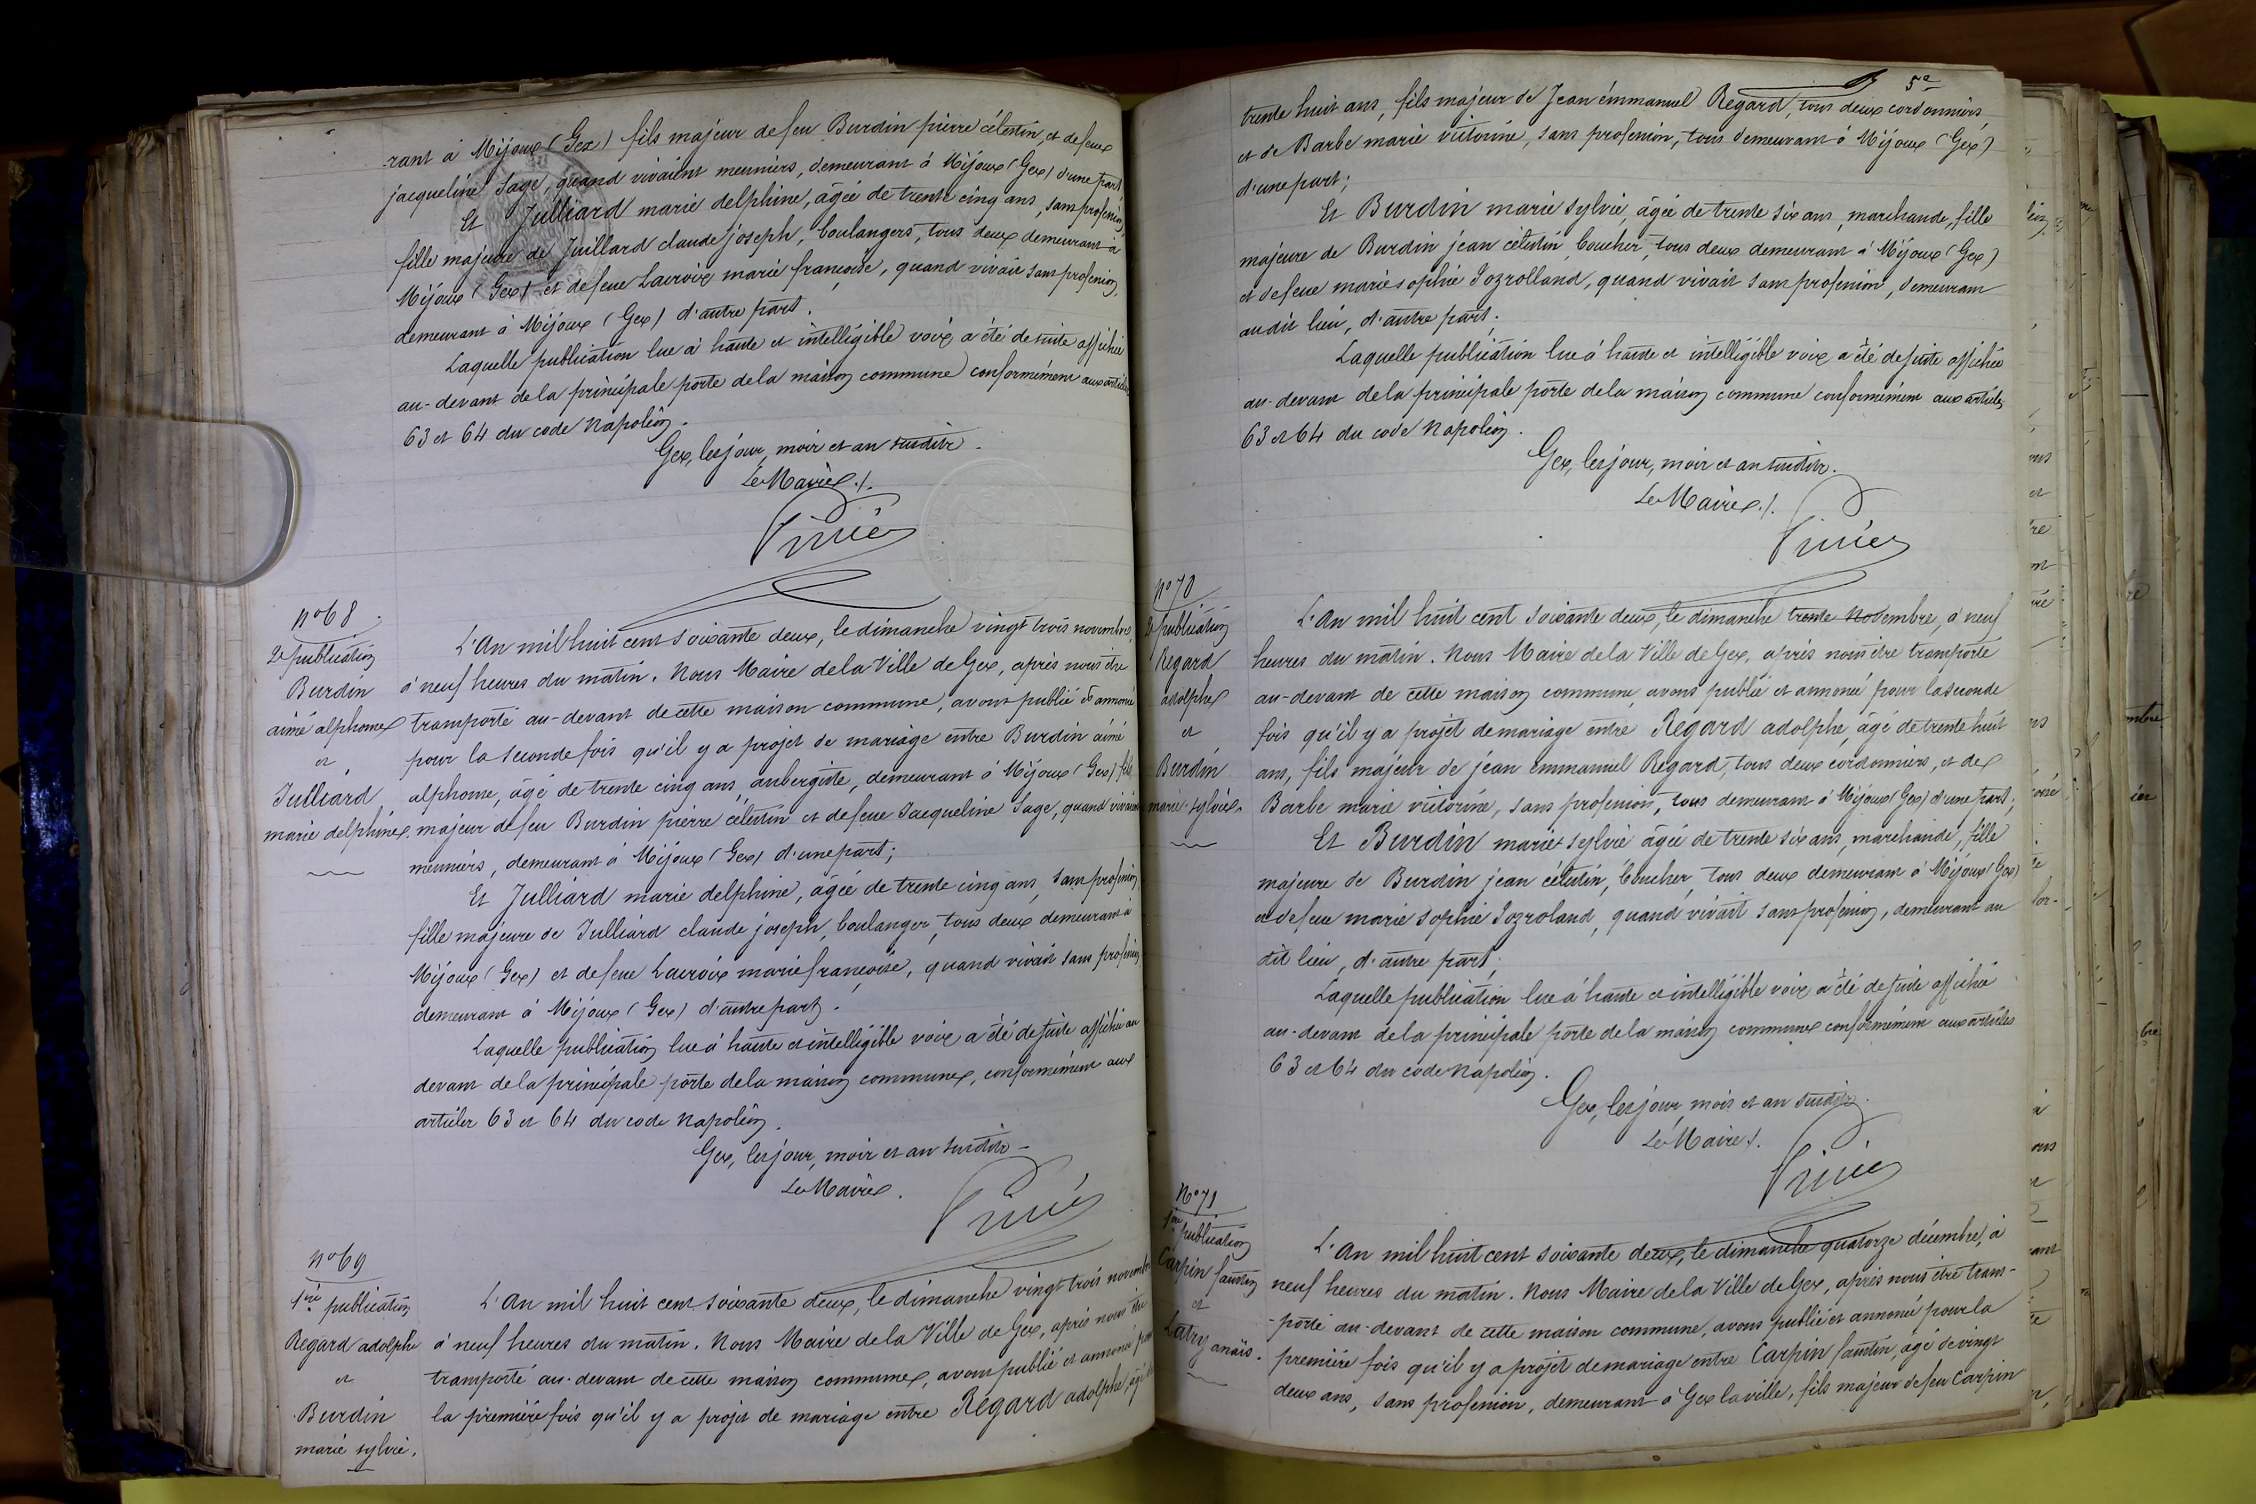 rant à Mijoux (Gex) fils majeur de feu Burdin pierre célestin, et de feue
jacqueline Sage, quand vivaient meuniers, demeurant à Mijoux (Gex) d'une part,
Et Julliard marie delphine, âgée de trente cinq ans, sans profession,
fille majeure de Juillard claude joseph, boulangers, tous deux demeurant à
Mijoux (Gex) et de feue Lacroix marie françoise, quand vivait sans profession,
demeurant à Mijoux (Gex) d'autre part.
Laquelle publication lue à haute et intelligible voix a été de suite affichée
au-devant de la principale porte de la maison commune conformément aux articles
63 et 64 du code Napoléon.
Gex, les jour, mois et an susdits.
Le Maire ./.
N° 68
2e publication
Burdin
aimé alphonse
et
Julliard
marie delphine.
L'An mil huit cent soixante deux, le dimanche vingt trois novembre,
à neuf heures du matin. Nous Maire de la Ville de Gex, après nous être
transporté au-devant de cette maison commune, avons publié et annoncé
pour la seconde fois qu'il y a projet de mariage entre Burdin aimé
alphonse, âgé de trente cinq ans, aubergiste, demeurant à Mijoux (Gex) fils
majeur de feu Burdin pierre célestin et de feue Jacqueline Sage, quand vivaient
meuniers, demeurant à Mijoux (Gex) d'une part;
Et Julliard marie delphine, âgée de trente cinq ans, sans profession,
fille majeure de Julliard claude joseph, boulanger, tous deux demeurant à
Mijoux (Gex) et de feue Lacroix marie françoise, quand vivait sans profession,
demeurant à Mijoux (Gex) d'autre part.
Laquelle publication lue à haute et intelligible voix a été de suite affichée au
devant de la principale porte de la maison commune, conformément aux
articles 63 et 64 du code Napoléon.
Gex, les jour, mois et an susdits
Le Maire.
N° 69
1ère publication
Regard adolphe
et
Burdin
marie sylvie.
L'An mil huit cent soixante deux, le dimanche vingt trois novembre
à neuf heures du matin. Nous Maire de la Ville de Gex, après nous être
transporté au-devant de cette maison commune, avons publié et annoncé pour
la première fois qu'il y a projet de mariage entre Regard adolphe, âgé de
trente huit ans, fils majeur de Jean émmanuel Regard, tous deux cordonniers
et de Barbe marie victorine, sans profession, tous demeurant à Mijoux (Gex)
d'une part;
Et Burdin marie sylvie, âgée de trente six ans, marchande, fille
majeure de Burdin jean célestin, boucher, tous deux demeurant à Mijoux (Gex)
et de feue marie sophie Jozrolland, quand vivait sans profession, demeurant
au dit lieu, d'autre part.
Laquelle publication lue à haute et intelligible voix a été de suite affichée
au-devant de la principale porte de la maison commune conformément aux articles
63 et 64 du code Napoléon.
Gex, les jour, mois et an susdits.
Le Maire ./.
N° 70
2e publication
Regard
adolphe
et
Burdin
marie sylvie.
L'An mil huit cent soixante deux, le dimanche trente Novembre, à neuf
heures du matin. Nous Maire de la Ville de Gex, après nous être transporté
au-devant de cette maison commune, avons publié et annoncé pour la seconde
fois qu'il y a projet de mariage entre Regard adolphe, âgé de trente huit
ans, fils majeur de jean emmanuel Regard, tous deux cordonniers, et de
Barbe marie victorine, sans profession, tous demeurant à Mijoux (Gex) d'une part;
Et Burdin marie sylvie âgée de trente six ans, marchande, fille
majeure de Burdin jean célestin, boucher, tous deux demeurant à Mijoux (Gex)
et de feue marie sophie Jozroland, quand vivait sans profession, demeurant au
dit lieu, d'autre part.
Laquelle publication lue à haute et intelligible voix a été de suite affichée
au-devant de la principale porte de la maison commune conformément aux articles
63 et 64 du code Napoléon.
Gex, les jour, mois et an susdits.
Le Maire ./.
N° 71
1ère publication
Carpin faustin
et
Latry anaïs.
L'An mil huit cent soixante deux, le dimanche quatorze décembre, à
neuf heures du matin. Nous Maire de la Ville de Gex, après nous être trans-
-porté au-devant de cette maison commune, avons publié et annoncé pour la
première fois qu'il y a projet de mariage entre Carpin faustin, âgé de vingt
deux ans, sans profession, demeurant à Gex la ville, fils majeur de feu Carpin